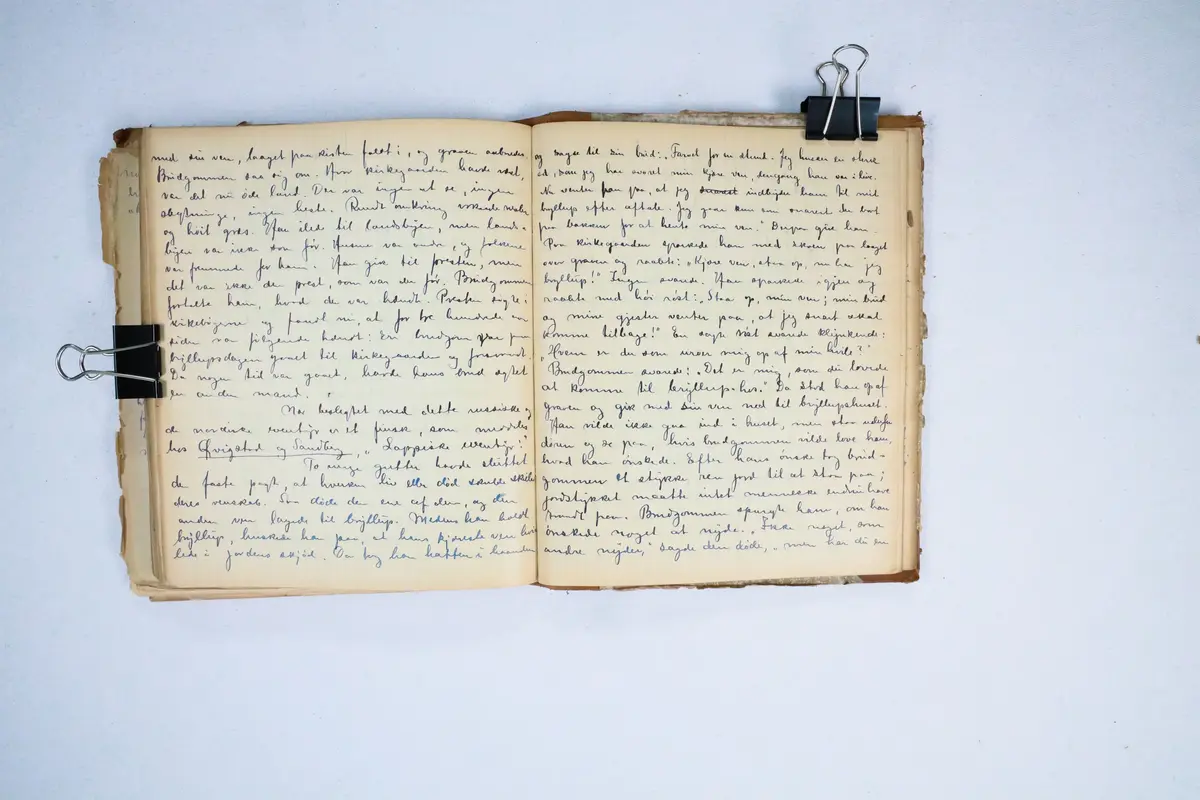 med sin ven, laaget paa kisten faldt i, og graven aabnedes.
Brudgommen saa sig om. Hvor kirkegaarden havde været,
var det nu øde land. Der var ingen at se, ingen
bygninge, ingen heste. Rundt omkring voksende
og høit græs. Han ilede til landsbyen, men lands-
byen var ikke som før. Husene var andre, og folkene
var fremmede for ham. Han gik til presten, men
det var ikke den prest, som var der før. Brudgommen
fortalte ham, hvad der var hændt. Presten søgte i
kirkebøgerne og fandt nu, at for tre hundrede aar
siden var følgende hændt: En brudgom var paa
bryllupsdagen gaaet til kirkegaarden og forsvundet.
Da nogen tid var gaaet, havde hans brud ægtet
en anden mand.
Nær beslegtet med dette russiske og
de nordiske eventyr er et finsk, som meddeles
hos Qvigstad og Sandberg, „Lappiske eventyr":
To unge gutter havde sluttet
den faste pagt, at hverken liv eller død skulde skille
deres venskab. Saa døde den ene af dem, og den
anden ven lagede til bryllup. Medens han holdt
bryllup, huskede han paa, at hans kjæreste ven hvi-
lede i jordens skjød. Da tog han hatten i haanden
og sagde til sin brud: „Farvel for en stund. Jeg husker en sterk
ed, som jeg har svoret min kjære ven, dengang han var i live.
Nu venter han paa, at jeg snarest indbyder ham til mit
bryllup efter aftale. Jeg gaar kun som snarest der bort
paa bakken for at hente min ven." Derpaa gik han.
Paa kirkegaarden sparkede han med skoen paa laaget
over graven og raabte: „Kjære ven, staa op, nu har jeg
bryllup!" Ingen svarede. Han sparkede igjen og
raabte med høi røst: „Staa op, min ven; min brud
og mine gjester venter paa, at jeg snart skal
komme tilbage!" En sagte røst svarede klynkende:
„Hvem er du som uroer mig op af min hvile?"
Brudgommen svarede: „Det er mig, som du lovede
at komme til bryllup hos." Da stod han op af
graven og gik med sin ven ned til bryllupshuset.
Han vilde ikke gaa ind i huset, men staa udenfor
døren og se paa, hvis brudgommen vilde love ham,
hvad han ønskede. Efter hans ønske tog brud-
gommen et stykke ren jord til at staa paa;
jordstykket maatte intet menneske endnu have
traadt paa. Brudgommen spurgte ham, om han
ønskede noget at nyde. „Ikke noget, som
andre nyder," sagde den døde, „men har du en